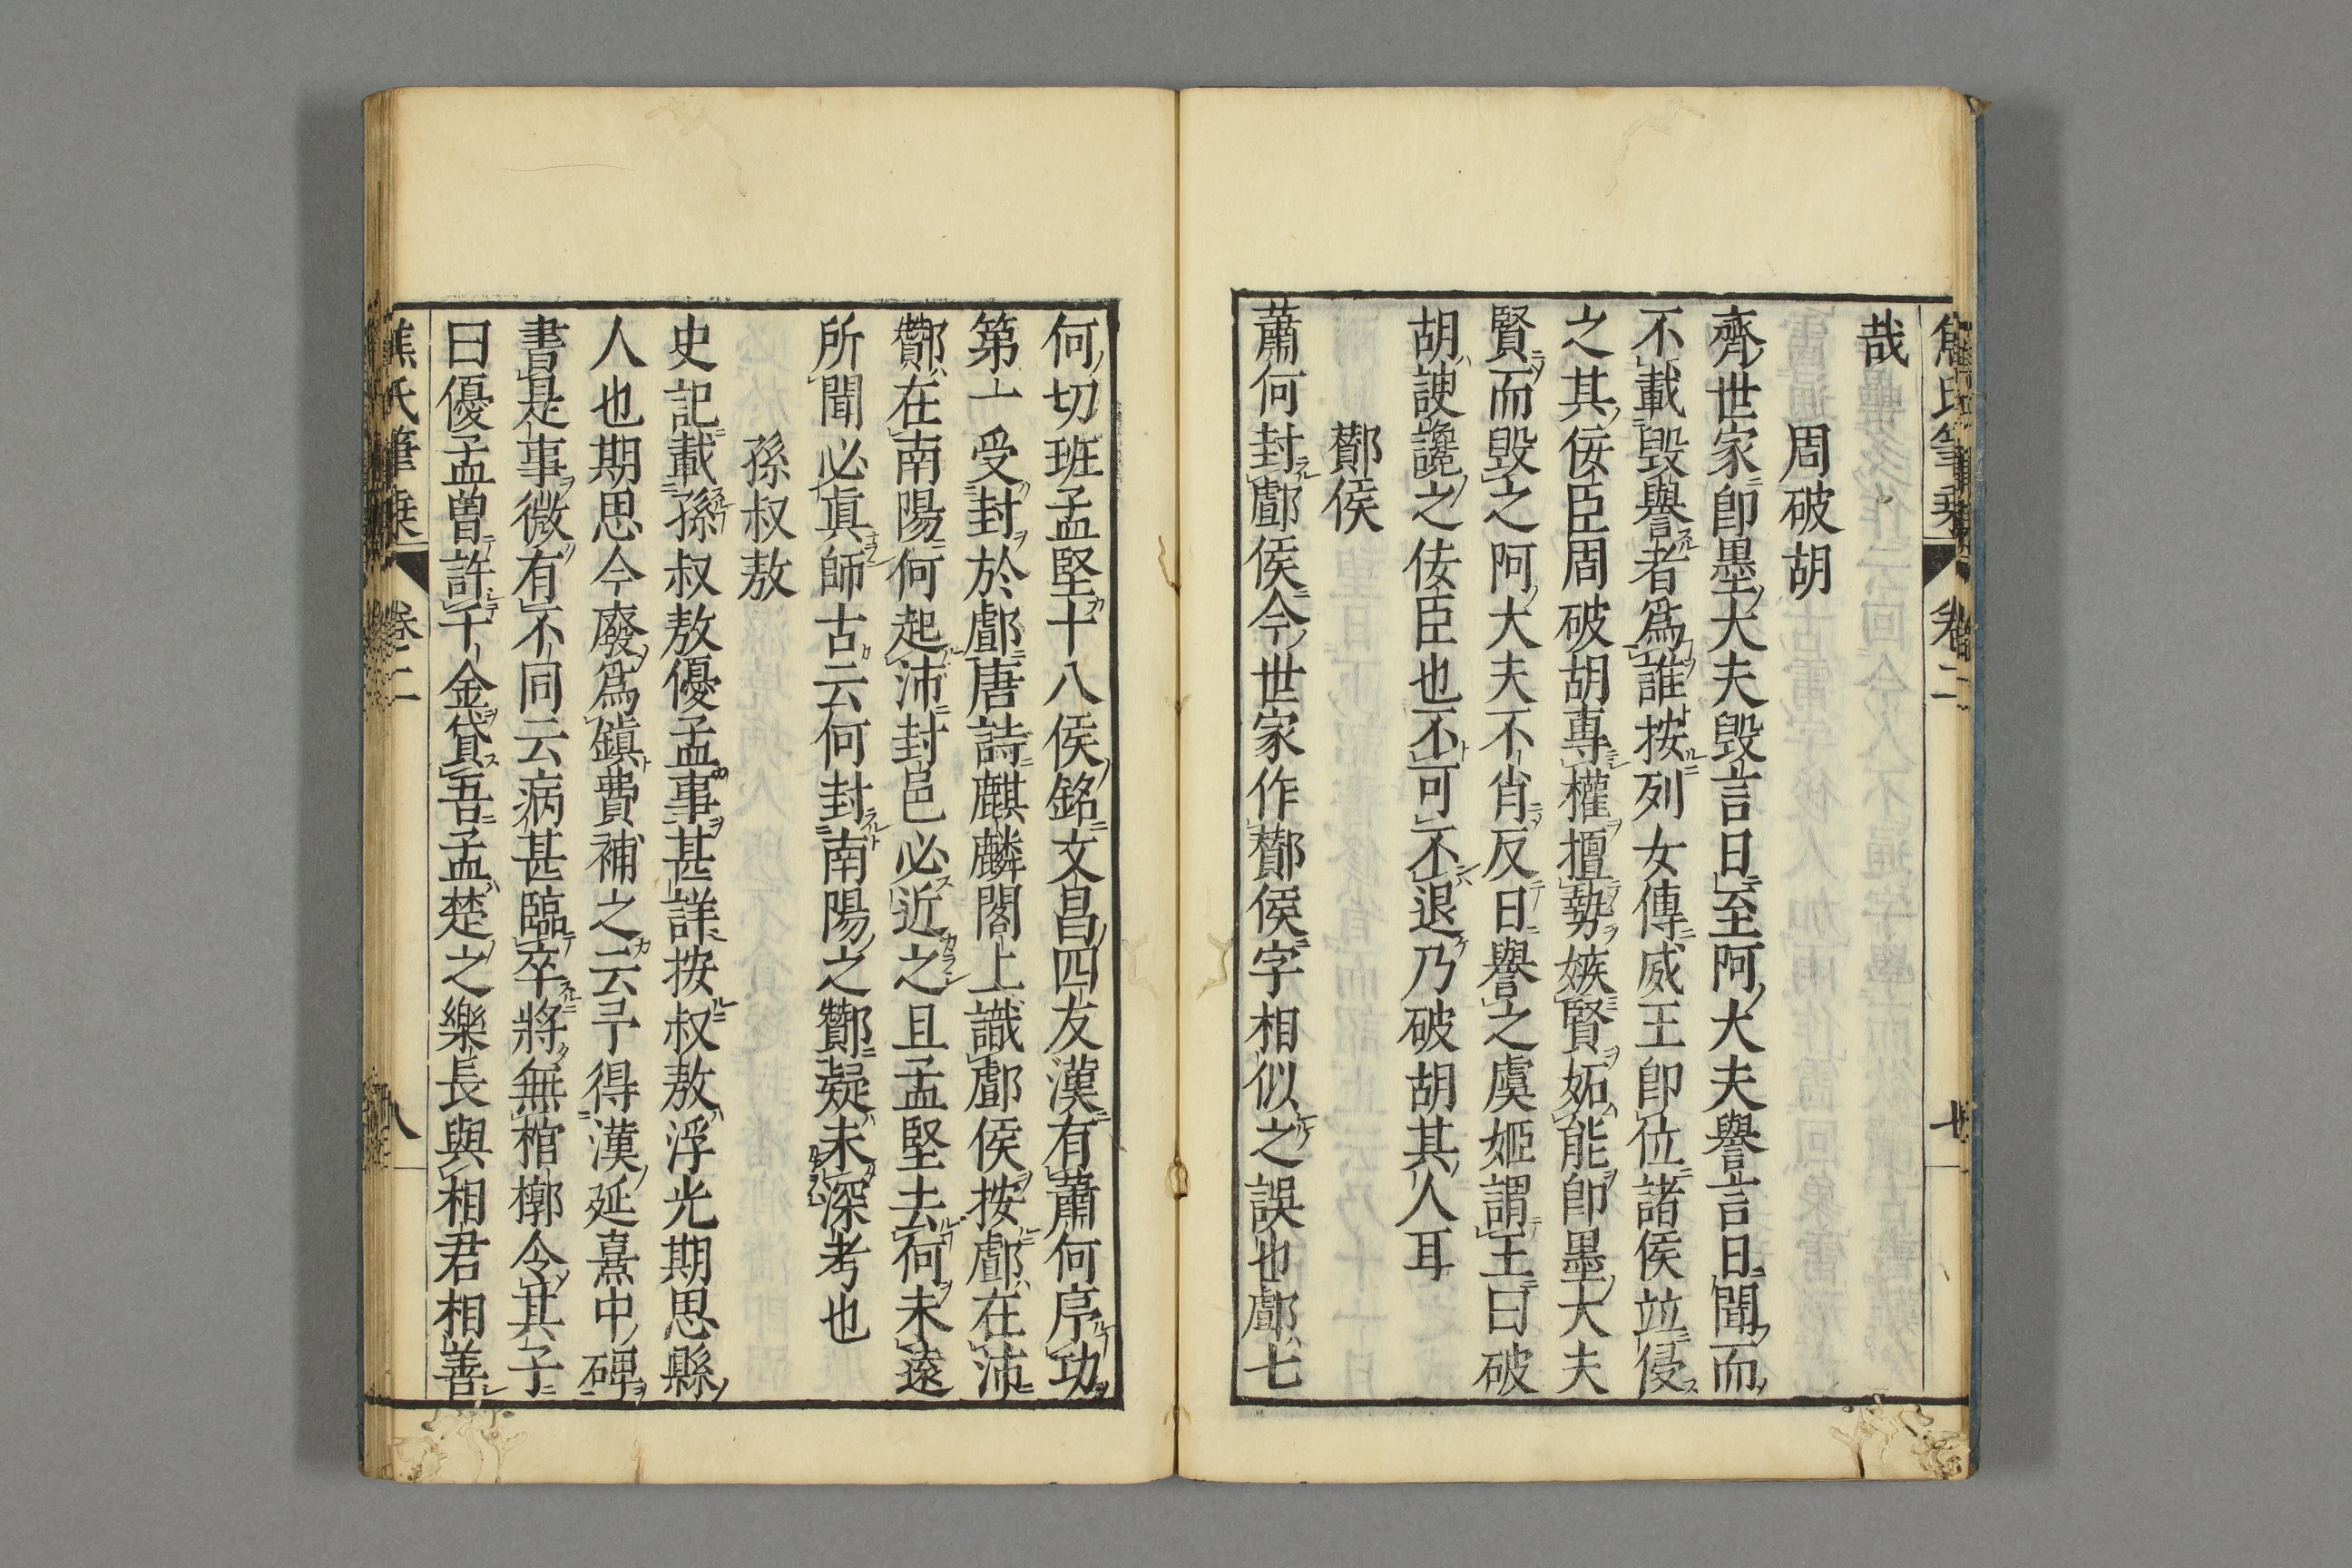 焦氏筆乗 卷二 七
哉
周破胡
齊世家卽墨大夫毀言日至阿大夫譽言日聞而
不載毀譽者爲誰按列女傳威王卽位諸侯竝侵
之其佞臣周破胡專權擅勢嫉賢妬能卽墨大夫
賢而毀之阿大夫不肖反日譽之虞姬謂王曰破
胡諛讒之佞臣也不可不退乃破胡其人耳
酇侯
蕭何封鄘侯今世家作酇侯字相似之誤也鄘七
何切班孟堅十八侯銘文昌四友漢有蕭何序功
第一受封於鄘唐詩麒麟閣上識鄘侯按鄘在沛
酇在南陽何起沛封邑必近之且孟堅去何未遠
所聞必眞師古云何封南陽之酇疑未深考也
孫叔敖
史記載孫叔敖優孟事甚詳按叔敖浮光期思縣
人也期思今廢爲鎭費補之云予得漢延熹中碑
書是事微有不同云病甚臨卒將無棺槨令其子
曰優孟曽許千金貸吾孟楚之樂長與相君相善
焦氏筆乗 卷二 八